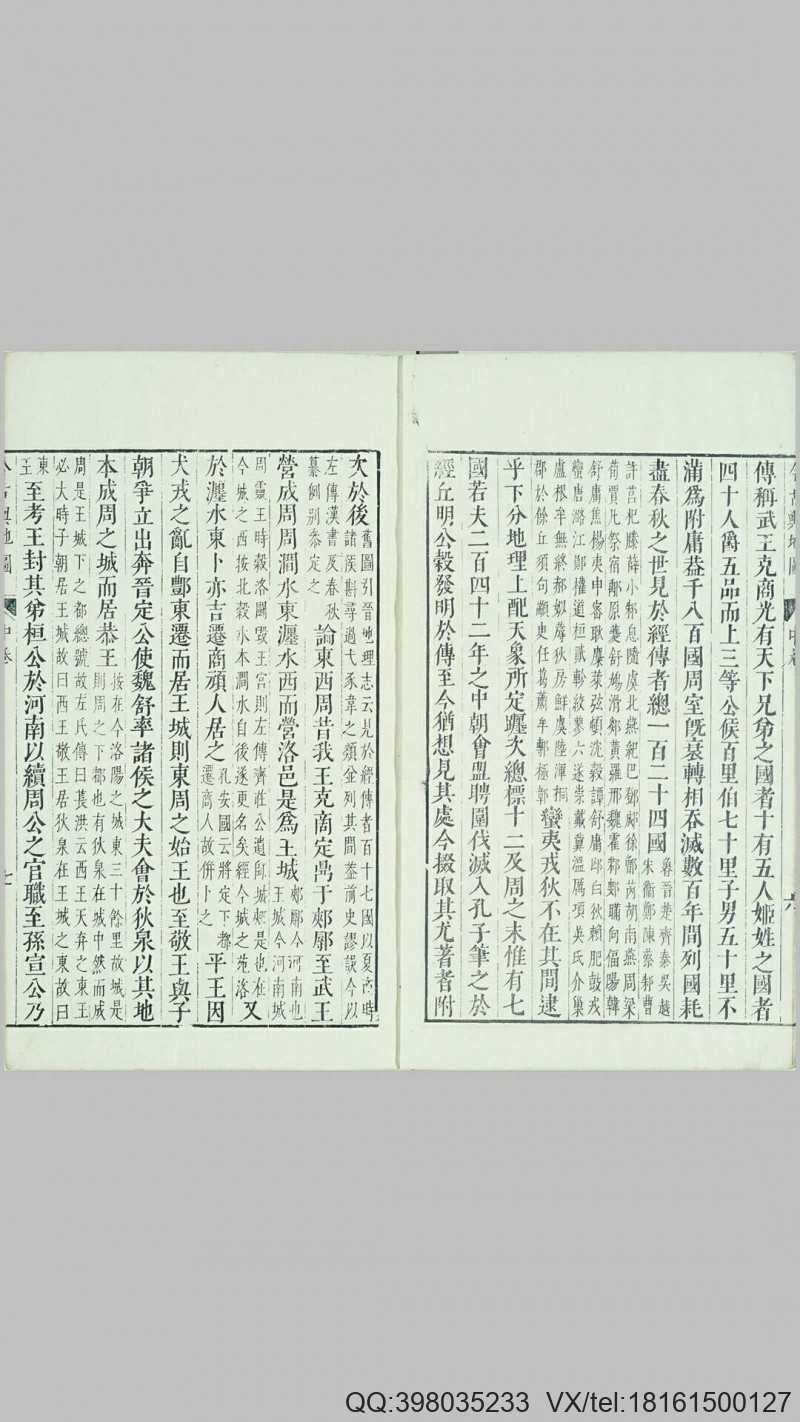 傳稱武王克商光有天下兄弟之國者十有五人姬姓之國者
四十人爵五品而上三等公侯百里伯七十里子男五十里不
滿爲附庸葢千八百國周室旣衰轉相吞滅數百年間列國耗
盡春秋之世見於經傳者總一百二十四國魯晉楚齊秦吳越
朱衞鄭陳蔡邾曹
許莒杞滕薛小邾息隨虞北燕紀巴鄧郕徐鄫芮胡南燕周梁
荀賈凡祭宿郕原夔舒鳩滑郯黃羅邢魏霍郜鄭瞞向偪陽韓
舒庸焦楊夷申密耿麋萊弦頓沈穀譚舒庸邱白狄賴肥鼓戎
蠻唐潞江鄖權道桓貳軫絞蓼六遂崇戴冀溫厲項英氏介巢
盧根牟無終郝姒蓐狄房鮮虞陸渾桐
鄀於餘丘須句顓臾任葛蕭牟鄅極鄣
蠻夷戎狄不在其間逮
乎下分地理上配天象所定躔次總標十二及周之末惟有七
國若夫二百四十二年之中朝會盟聘圍伐滅入孔子筆之於
經丘明公穀發明於傳至今猶想見其處今掇取其尤著者附
次於後舊圖引晉地理志云見於經傳者百十七國以夏古時
諸侯斟尋過戈豕韋之類並列其間蓋前史謬誤今以
左傳漢書及春秋
纂例別叅定之
論東西周昔我王克商定鼎于郟鄏至武王
營成周周澗水東瀍水西而營洛邑是爲王城郟鄏今河南也
王城今河南城
周靈王時穀洛鬬毀王宮則左傳齊莊公遣師城郟是也在
今城之西按北穀水本澗水自後遂更名矣經今城之苑洛
又
於瀍水東卜亦吉遷商頑人居之孔安國云將定下都
遷商人故併卜之
平王因
犬戎之亂自酆東遷而居王城則東周之始王也至敬王與子
朝爭立出奔晉定公使魏舒率諸侯之大夫會於狄泉以其地
本成周之城而居恭王按在今洛陽之城東三十餘里故城是
則周之下都也有狄泉在城中然而成
周是王城下之都總號故左氏傳曰萇洪云西王天弃之東王
必大時子朝居王城故曰西王敬王居狄泉在王城之東故曰
東
王
至考王封其弟桓公於河南以續周公之官職至孫宣公乃
中卷
七
QQ:398035233 VX/tel:18161500127